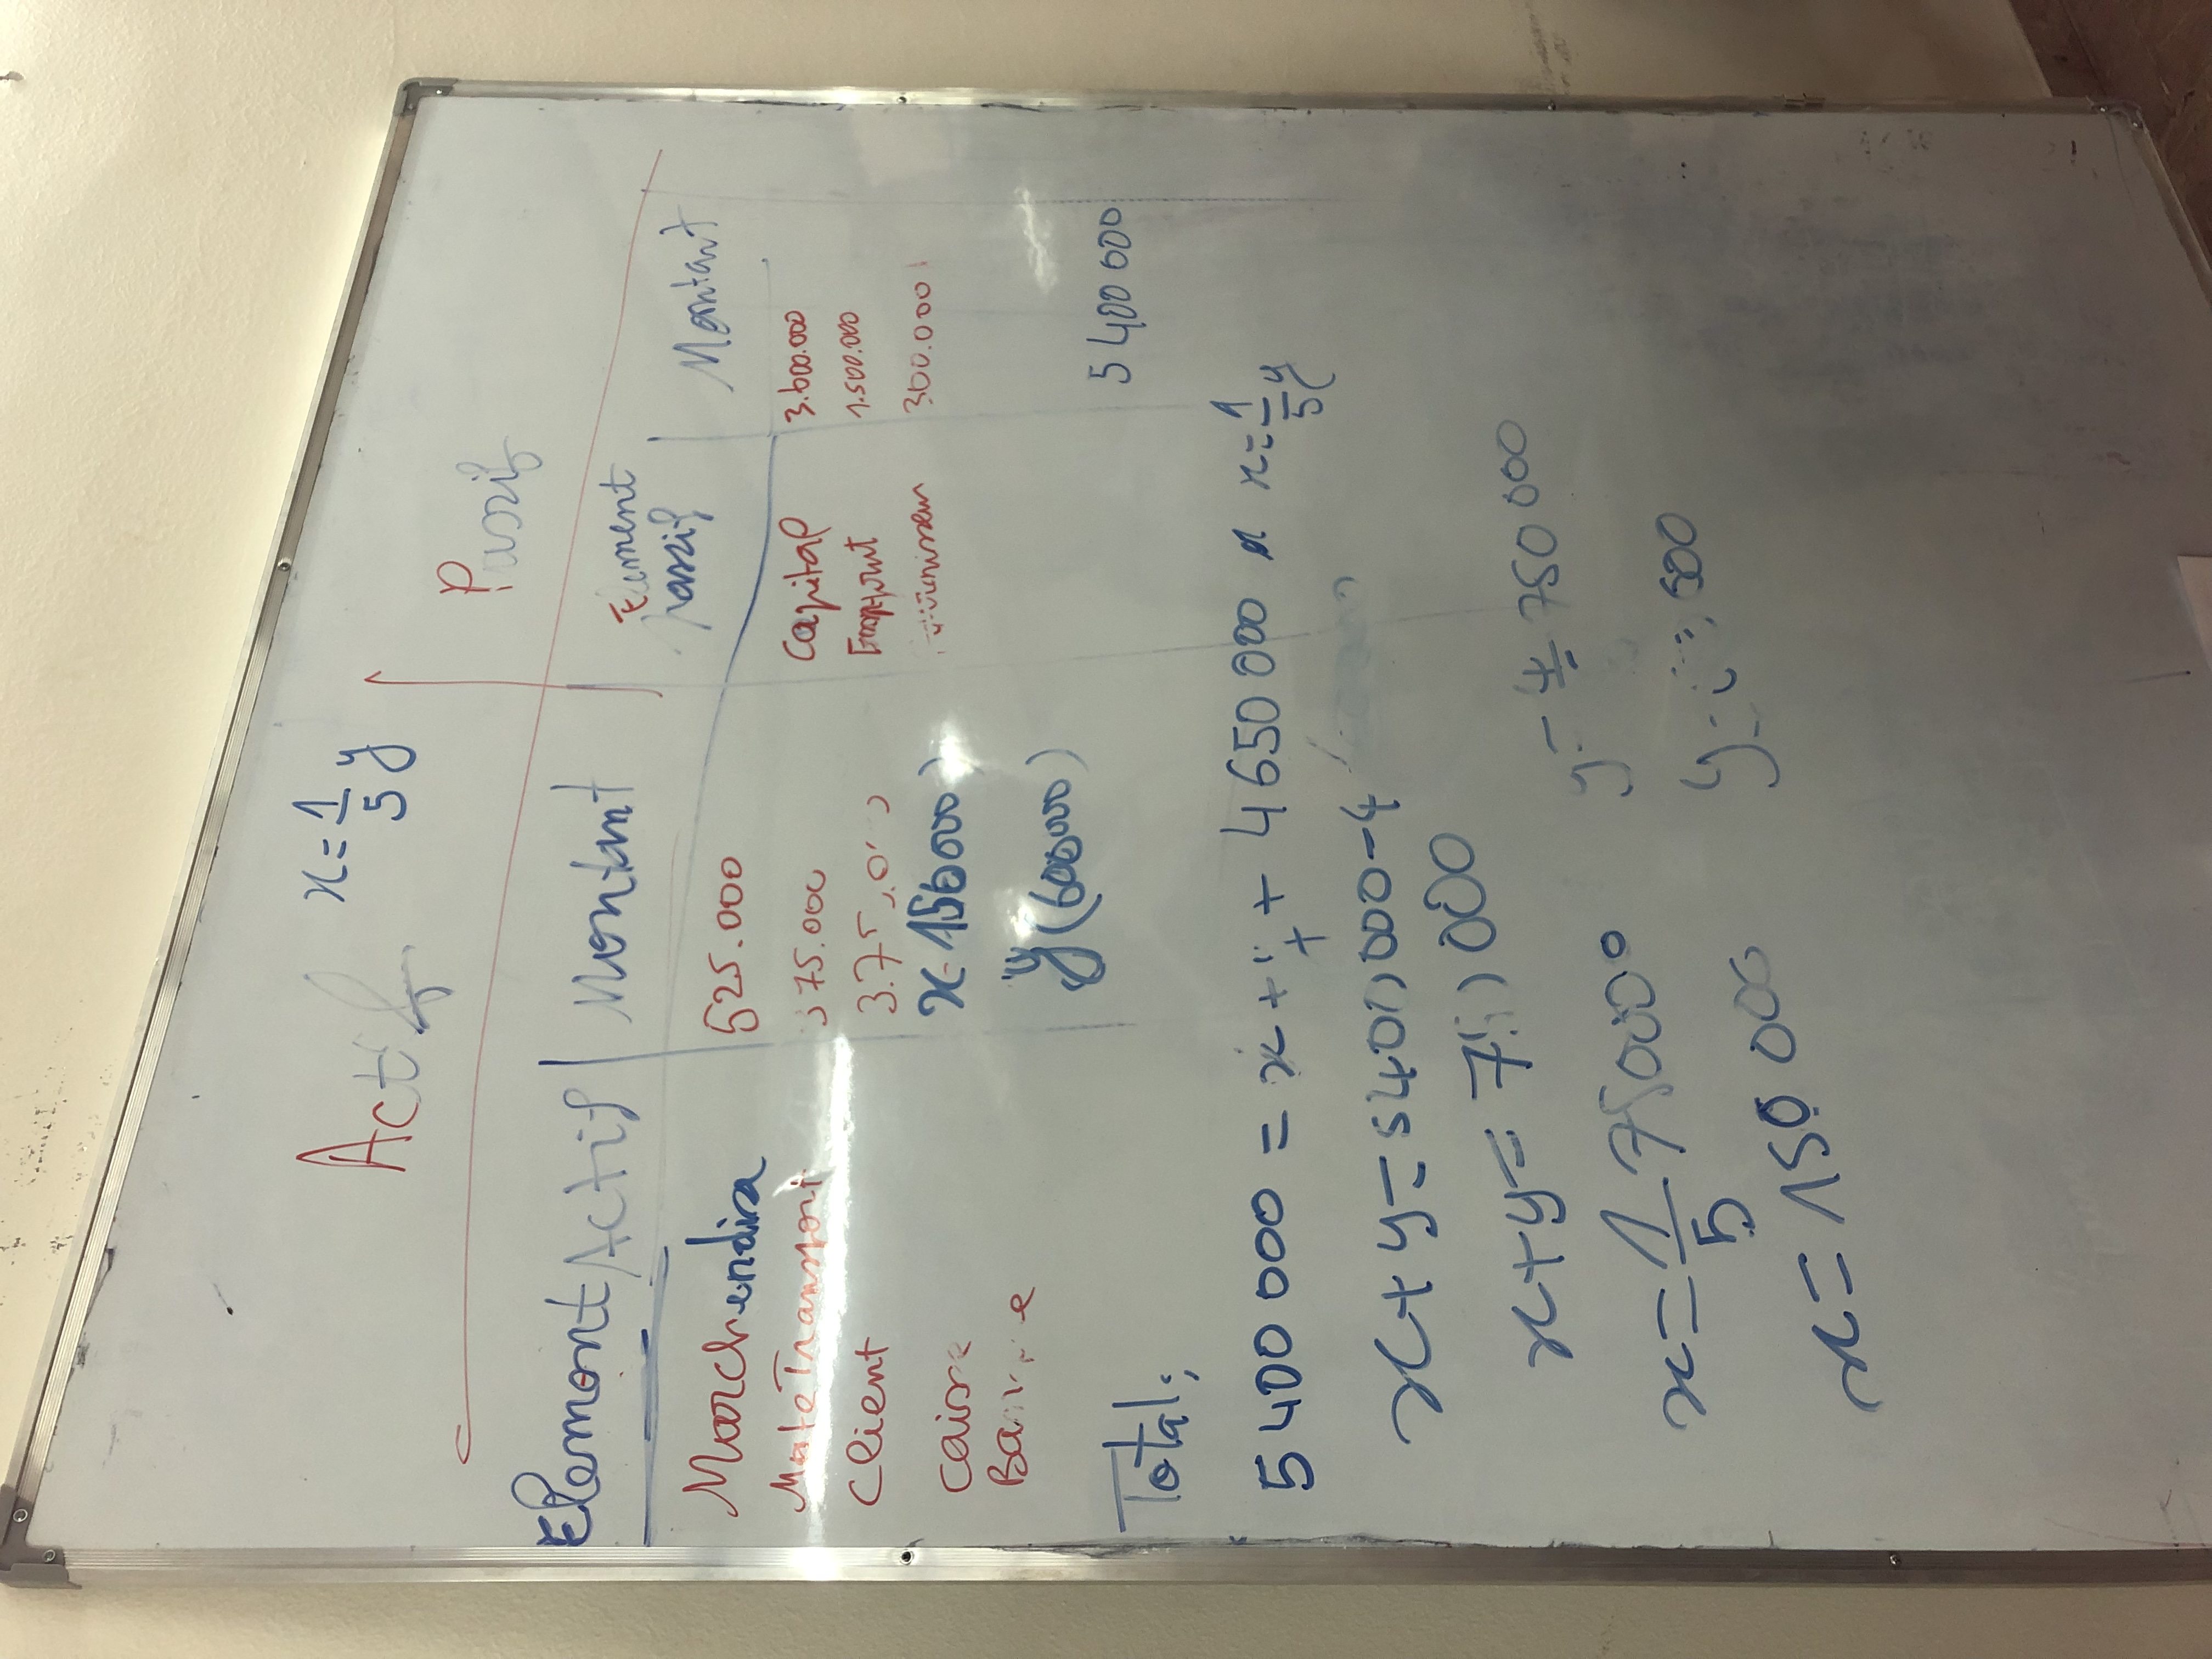 Actif x = 1/5 y Passif
Element Actif Montant Element passif Montant
Marchendise 525.000 Capital 3.600.000
Mate Transport 375.000 Emprunt 1.500.000
Client 300.000
Caisse x = 150000)
y (600000)
Total: 5 400 000
5 400 000 = x + + 4 650 000 x = 1/5 y
x + y = 5 400 000 - 4
x + y = 000
x = 1/5 75 0000 y = 4/5 750 000
x = 150 000 y = 600